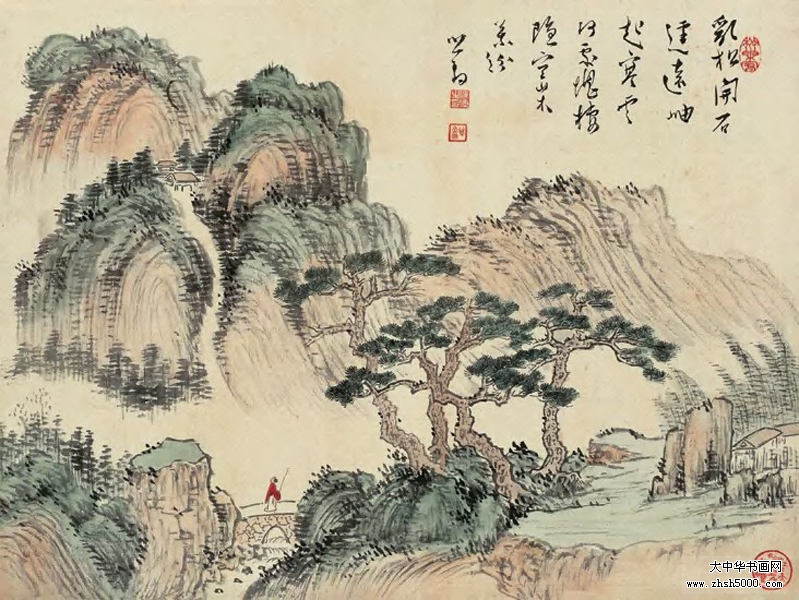 亂松開石
逕遠岫
起寒雲
何處堪棲
隱空山木
葉紛
大中华书画网
www.zhsh5000.com